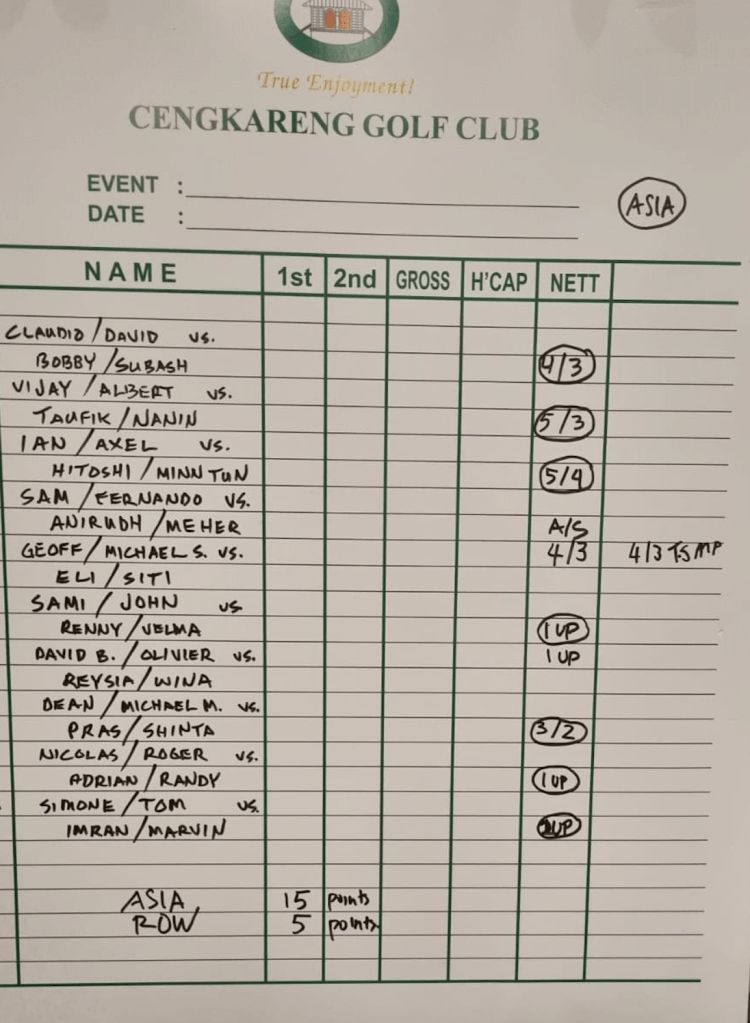 True Enjoyment!
CENGKARENG GOLF CLUB
EVENT :
DATE :
ASIA
NAME 1st 2nd GROSS H'CAP NETT
CLAUDIO / DAVID VS.
BOBBY / SUBASH 4/3
VIJAY / ALBERT VS.
TAUFIK / NANIN 5/3
IAN / AXEL VS.
HITOSHI / MINN TUN 5/4
SAM / FERNANDO VS.
ANIRUDH / MEHER A/S
GEOFF / MICHAEL S. VS. 4/3 4/3
ELI / SITI
SAMI / JOHN VS
RENNY / VELMA 1 UP
DAVID B. / OLIVIER VS. 1 UP
REYSIA / WINA
DEAN / MICHAEL M. VS.
PRAS / SHINTA 3/2
NICOLAS / ROGER VS.
ADRIAN / RANDY 1 UP
SIMONE / TOM VS.
IMRAN / MARVIN UP
ASIA 15 points
ROW 5 points